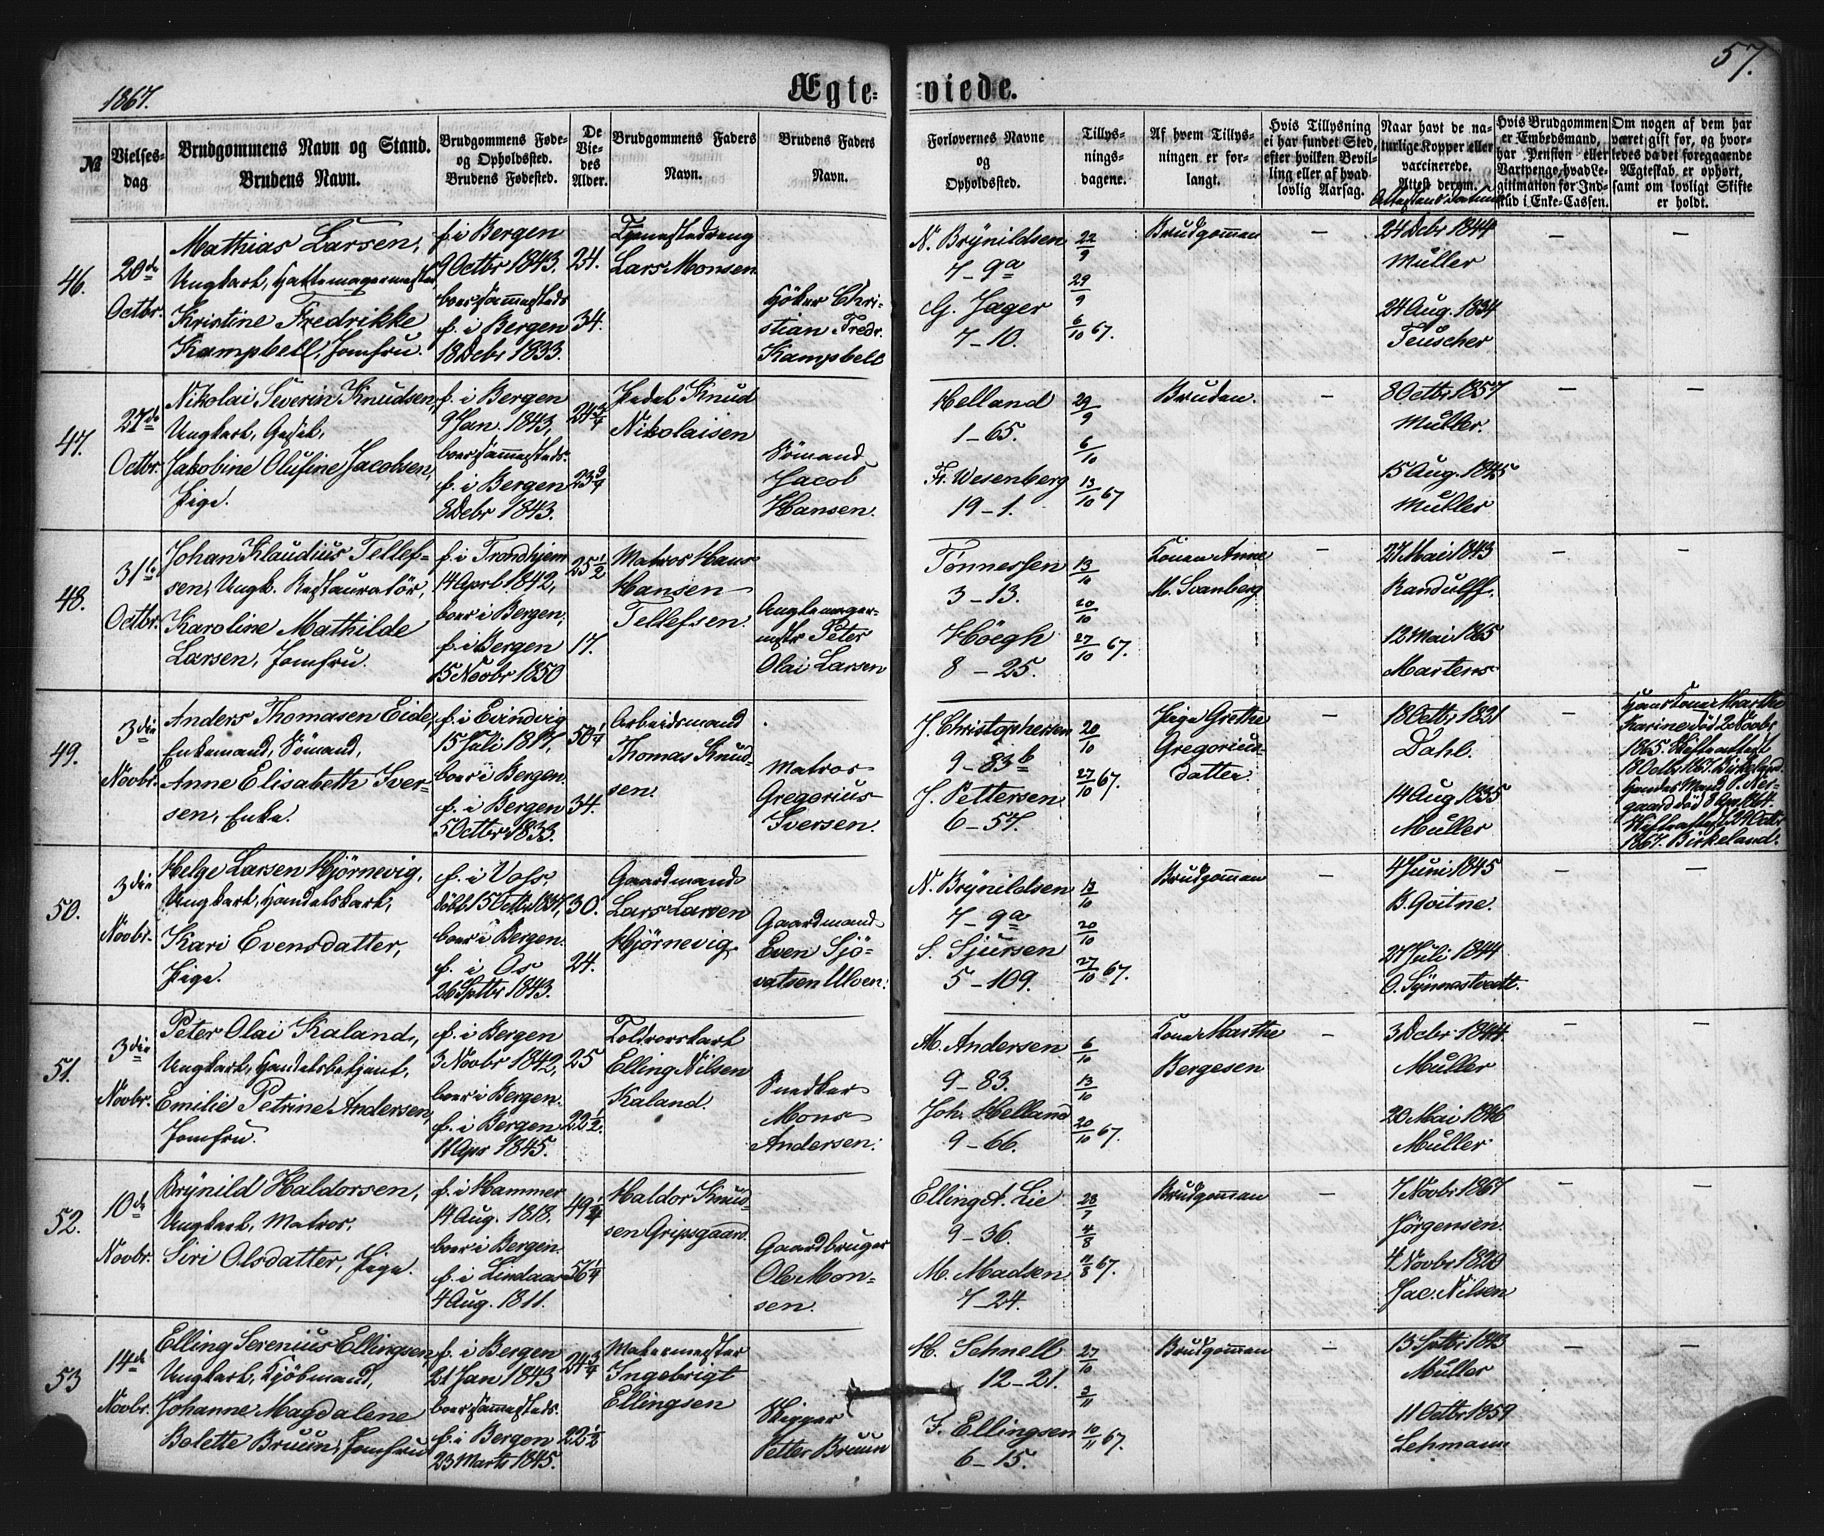 57.
1867.
Ægte-viede.
№
Vielses-
dag.
Brudgommens Navn og Stand.
Brudens Navn.
Brudgommens Føde-
og Opholdssted.
Brudens Fødested.
De
Vie-
des
Alder.
Brudgommens Faders
Navn.
Brudens Faders
Navn.
Forlovernes Navne
og
Opholdssted.
Tillys-
nings-
dagene.
Af hvem Tillys-
ningen er for-
langt.
Hvis Tillysning
ei har fundet Sted,
efter hvilken Bevil-
ling eller af hvad
lovlig Aarsag.
Naar havt de na-
turlige Kopper eller
vaccinerede.
Attest derom.
Hvis Brudgommen
er Embedsmand,
har Pension eller
Vartpenge, hvad Le-
gitimation for Ind-
skud i Enke-Cassen.
Om nogen af dem har
været gift før, og hvor-
ledes da det foregaaende
Ægteskab er ophørt,
samt om lovligt Skifte
er holdt.
46.
20de
Octbr.
Mathias Larsen,
Ungkarl, Hattemagermester
Kristine Fredrikke
Kampbell, Jomfru.
f. i Bergen
9 Octbr 1843.
boer sammesteds
f. i Bergen
18 Debr 1833.
24.
34.
Tjenestedreng
Lars Monsen
Höker Chri-
stian Fredr.
Kampbell
N. Brynildsen
7-9a
G. Jæger
7-10.
22/9
29/9
6/10 67.
Brudgommen
—
24 Debr 1844
Müller
24 Aug. 1834
Teuscher
—
—
47.
27de
Octbr.
Nikolai Severin Knudsen,
Ungkarl, Gesel,
Jakobine Olufine Jacobsen,
Pige.
f. i Bergen
9 Jan. 1843,
boer sammesteds.
f. i Bergen
8 Debr 1843.
24 3/4
23 3/4
Pedel Knud
Nikolaisen
Sömand
Jacob
Hansen.
Helland
1-65.
Fr. Wesenberg
19-1.
29/9
6/10
13/10 67
Bruden.
—
8 Octbr 1857
Müller.
15 Aug. 1845
Müller
—
—
48.
31te
Octbr.
Johan Klaudius Tellef-
sen, Ungk. Restauratør,
Karoline Mathilde
Larsen, Jomfru.
f. i Trondhjem
14 April 1842,
boer i Bergen,
f. i Bergen
15 Novbr 1850
25 1/2
17.
Matros Hans
Hansen
Tellefsen.
Peter
Olai Larsen
Tønnessen
3-13.
Höegh
8-25.
13/10
20/10
27/10 67.
Konen Anne
M. Svanberg
—
27 Mai 1843
Randulff.
13 Mai 1865
Martens
—
—
49.
3die
Novbr.
Anders Thomasen Eide,
Enkemand, Sömand,
Anne Elisabeth Iver-
sen, Enke.
f. i Evindvig
15 Juli 1817,
boer i Bergen.
f. i Bergen
5 Octbr 1833.
50 1/4
34.
Arbeidsmand
Thomas Knud-
sen.
Matros
Gregorius
Iversen.
J. Christophersen
9-83b
J. Pettersen
6-57.
20/10
27/10 67.
Pige Grethe
Gregorius-
datter
—
18 Octbr 1821
Dahl.
14 Aug. 1835
Müller
—
Hans Kone Marthe
Karine død 20 Novbr
1865. Skifteattest
18 Octbr 1867. Birkeland.
1867. Birkeland.
50.
3die
Novbr.
Helge Larsen Hjørnevig,
Ungkarl, Handelskarl,
Kari Evensdatter,
Pige.
f. i Voss,
boer i Bergen.
f. i Os
26 Septbr 1843.
30.
24.
Gaardmand
Lars Larsen
Hjørnevig.
Gaardmand
Even Sjö-
vatsen Ulven.
N. Brynildsen
7-9a
S. Sjursen
5-109.
13/10
20/10
27/10 67.
Brudgommen
—
4 Juni 1845
B. Goitne.
27 Juli 1844
—
—
51.
3die
Novbr.
Peter Olai Kaland,
Ungkarl, Handelsbetjent,
Emilie Petrine Andersen,
Jomfru.
f. i Bergen
3 Novbr 1842,
boer i Bergen.
f. i Bergen
11 Apr 1845.
25
22 1/2.
Toldrorskarl
Elling Nilsen
Kaland.
Snedker
Mons
Andersen.
M. Andersen
9-83.
Joh. Helland
9-66.
6/10
13/10
20/10 67.
Kone Marthe
Bergesen
—
3 Debr 1844
Müller
20 Mai 1846
Müller
—
—
52.
10de
Novbr.
Brynild Haldorsen,
Ungkarl, Matros,
Siri Olsdatter, Pige.
f. i Hammer
14 Aug. 1818.
boer i Bergen.
f. i Lindaas
4 Aug. 1811.
49 1/4
56 1/4
Haldor Knud-
sen Gripsgaard.
Gaardbruger
Ole Mon-
sen.
Elling A. Lie
9-36.
M. Madsen
7-24.
28/7
4/8
11/8 67.
Brudgommen
—
7 Novbr 1867
Jörgensen.
4 Novbr 1820
Jac. Nilsen
—
—
53
14de
Novbr.
Elling Serenius Ellingsen,
Ungkarl, Kjöbmand,
Johanne Magdalene
Bolette Bruun, Jomfru
f. i Bergen
21 Jan 1843
boer sammesteds.
f. i Bergen
23 Marts 1845.
24 3/4
22 1/2
Ingebrigt
Ellingsen
Skipper
Petter Bruun
H. Schnell
12-21.
F. Ellingsen
6-15.
27/10
3/11
10/11 67.
Brudgommen
—
13 Septbr 1843
Müller
11 Octbr 1859
Lehmann
—
—